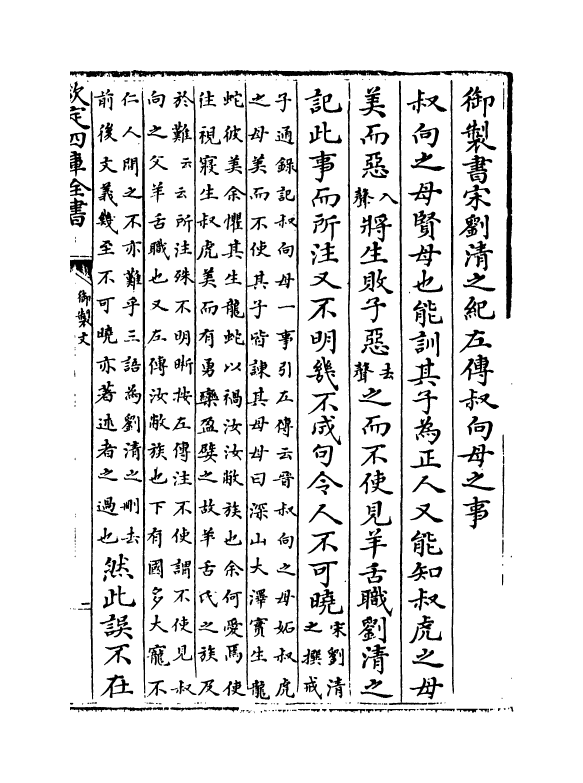 御製書宋劉清之紀左傳叔向母之事
叔向之母賢母也能訓其子為正人又能知叔虎之母
美而惡入聲將生敗子惡去聲之而不使見羊舌職劉清之
記此事而所注又不明幾不成句令人不可曉宋劉清
之撰戒
子通錄記叔向母一事引左傳云晉叔向之母妬叔虎
之母美而不使其子皆諫其母母曰深山大澤實生龍
蛇彼美余懼其生龍蛇以禍汝汝敝族也余何愛焉使
往視寢生叔虎美而有勇欒盈嬖之故羊舌氏之族及
於難云云所注殊不明晰按左傳注不使謂不使見叔
向之父羊舌職也又左傳汝敝族也下有國多大寵不
仁人間之不亦難乎三語為劉清之刪去
前後文義幾至不可曉亦著述者之過也然此誤不在
欽定四庫全書
御製文
二